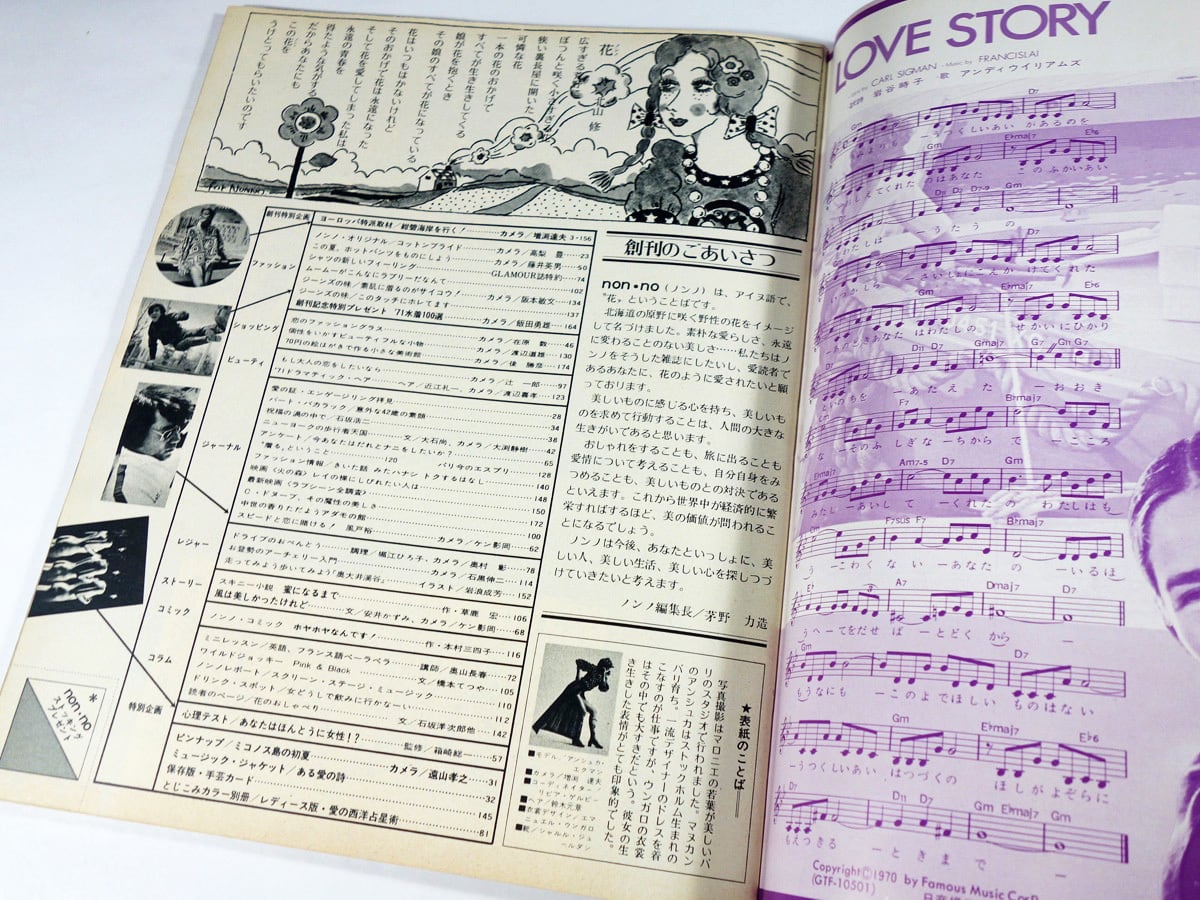 花
北山 修
ぽつんと咲く小さな
狭い裏長屋に開いた
可憐な花
一本の花のおかげで
すべてが生き生きしてくる
娘が花を抱くとき
その娘のすべてが花になっている
花はいつもはかないけれど
そのおかげで花は永遠になった
そして花を愛してしまった私は
永遠の青春を
得たような気がする
だからあなたにも
この花を
うけとってもらいたいのです
FOR NONNO
創刊特別企画
ヨーロッパ特派取材/紺碧海岸を行く!………カメラ/増渕達夫 3・156
ファッション
ノンノ・オリジナル/コットンブライド………カメラ/高梨 豊…23
この夏、ホットパンツをものにしよう………カメラ/藤井英男…50
シャツの新しいフィーリング………GLAMOUR誌特約…74
ムームーがこんなにラブリーだなんて………102
ジーンズの味/素肌に着るのがサイコウ!………カメラ/阪本敏文…134
ジーンズの味/このタッチにホレてます………137
創刊記念特別プレゼント '71水着100選………カメラ/飯田勇雄…164
ショッピング
恋のファッショングラス………カメラ/在原 数…46
個性をいかすビューティフルな小物………カメラ/渡辺道雄…130
70円の絵はがきで作る小さな美術館………カメラ/佳 勝彦…174
ビューティ
もし大人の恋をしたいなら………カメラ/辻 一郎…97
'71ドラマティック・ヘア………ヘア/近江礼一、カメラ/渡辺嘉孝…123
ジャーナル
愛の証・エンゲージリング拝見………28
バート・バカラック/意外な42歳の素顔………34
祝福の渦の中で/石坂浩二………38
ニューヨークの歩行者天国………文/大石尚、カメラ/大渕静樹…42
アンケート/今あなたはだれとナニをしたいか?………65
"着る"ということ………120 パリ今のエスプリ………128
ファッション情報/きいた話 みたハナシ トクするはなし………140
映画〈火の森〉レイの裸にしびれた人は………148
最新映画〈ラブシーン全調査〉………150
C・ドヌーブ、その魔性の美しさ………172
中世の香りただようアダモの館………100
スピードと恋に賭ける! 風戸裕………カメラ/ケン影岡…62
レジャー
ドライブのおべんとう………調理/堀江ひろ子、カメラ/奥村 彰…78
お昼勢のアーチェリー入門………カメラ/石黒伸二…114
走ってみよう歩いてみよう「奥大井渓谷」………イラスト/岩浪成芳…152
ストーリー
スキニー小説 蜜になるまで………作・草鹿 宏…106
風は美しかったけれど………文/安井かずみ、カメラ/ケン影岡…68
コミック
ノンノ・コミック ホヤホヤなんです!………作・本村三四子…116
コラム
ミニレッスン/英語、フランス語ペーラペーラ………講師/奥山長春…72
ワイルドジョッキー Pink & Black………文/橋本てつや…105
ノンノレポート/スクリーン・ステージ・ミュージック………110
ドリンク・スポット/女どうしで飲みに行かなーい………112
読者のページ/花のおしゃべり………文/石坂洋次郎他…142
特別企画
心理テスト/あなたはほんとうに女性!?………監修/箱崎総一…57
ピンナップ/ミコノス島の初夏………カメラ/遠山孝之…31
ミュージック・ジャケット/ある愛の詩………32
保存版・手芸カード………145
とじこみカラー別冊/レディース版・愛の西洋占星術………81
*
non・no
ストッキング
プレゼント
創刊のごあいさつ
non・no(ノンノ)は、アイヌ語で、
"花"ということばです。
北海道の原野に咲く野性の花をイメージ
して名づけました。素朴な愛らしさ、永遠
に変ることのない美しさ……私たちはノ
ンノをそうした雑誌にしたいし、愛読者で
あるあなたに、花のように愛されたいと願
っております。
美しいものに感じる心を持ち、美しいも
のを求めて行動することは、人間の大きな
生きがいであると思います。
おしゃれをすることも、旅に出ることも
愛情について考えることも、自分自身をみ
つめることも、美しいものとの対決である
といえます。これから世界中が経済的に繁
栄すればするほど、美の価値が問われるこ
とになるでしょう。
ノンノは今後、あなたといっしょに、美し
い人、美しい生活、美しい心を探しつづ
けていきたいと考えます。
ノンノ編集長/茅野 力造
★表紙のことば
写真撮影はマロニエの若葉が美しいパ
リのスタジオで行われました。マヌカン
のアンシュカはストックホルム生まれの
パリ育ち。一流デザイナーのドレスを着
こなすのが仕事ですが、ウンガロの衣裳
はその中でも大すきだという。彼女の生
き生きした表情がとても印象的でした。
■モデル/アンシュカ・
エクマン
■カメラ/増渕 達夫
■コーディネイター/
リピア・ゲルビー
■ヘア/鈴木元章
■衣裳デザイン/エマ
ニュエル・ウンガロ
■靴/シャルル・ジュ
ールダン
LOVE STORY
Lyrics by CARL SIGMAN・Music by FRANCIS LAI
訳詩 岩谷時子 歌 アンディウイリアムズ
Gm D7
ーうつくしいあい があるのを
E♭maj7 E♭6
してくれた のはあなた このふかいあい
D11 D7 D7-9 Gm
わたしは ーうたう の
いつかしら さいしょにこえか けてくれた
あなたはわたしの せかいにひかり
D11 D7 Gm G7
といのちを ーあたえ た ーおおき
F7 B♭maj7
なーそのふ しぎな ーちから で ーこころ
Am7-5 D7 Gm G7
みたしーあいして ーくれたの わたしはも
F7sus F7 B♭maj7
うーこわくない ーあなた の ーいるほ
E♭ A7 Dmaj7
うへーてをだせ ば ーとどく から
D7 Gm
もうなにも ーこのよでほしい ものはない
Gm E♭maj7 E♭6
ーうつくしいあい はつづくの ほしがよぞらに
D7 D11 D7 Gm E♭maj7 Gm
もえつきる ーときま で ー
Copyright©1970 by Famous Music Corp.
(GTF-10501)